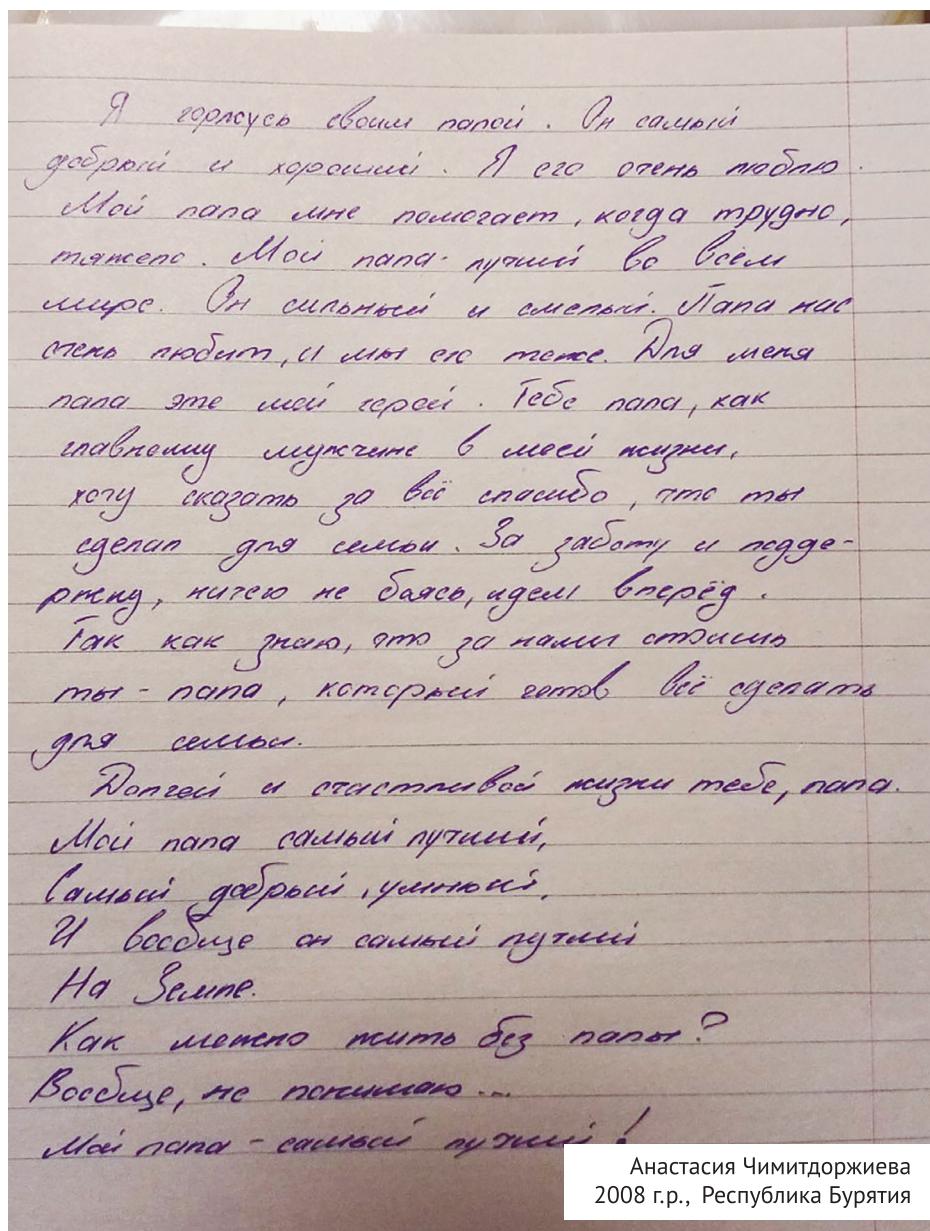 Я горжусь своим папой. Он самый
добрый и хороший. Я его очень люблю.
Мой папа мне помогает, когда трудно,
тяжело. Мой папа - лучший во всём
мире. Он сильный и смелый. Папа нас
очень любит, и мы его тоже. Для меня
папа это мой герой. Тебе папа, как
главному мужчине в моей жизни,
хочу сказать за всё спасибо, что ты
сделал для семьи. За заботу и подде-
ржку, ничего не боясь, идем вперёд.
Так как знаю, что за нами стоишь
ты - папа, который готов всё сделать
для семьи.
Долгой и счастливой жизни тебе, папа.
Мой папа самый лучший,
Самый добрый, умный,
И вообще он самый лучший
На Земле.
Как можно жить без папы?
Вообще, не понимаю...
Мой папа - самый лучший!
Анастасия Чимитдоржиева
2008 г.р., Республика Бурятия